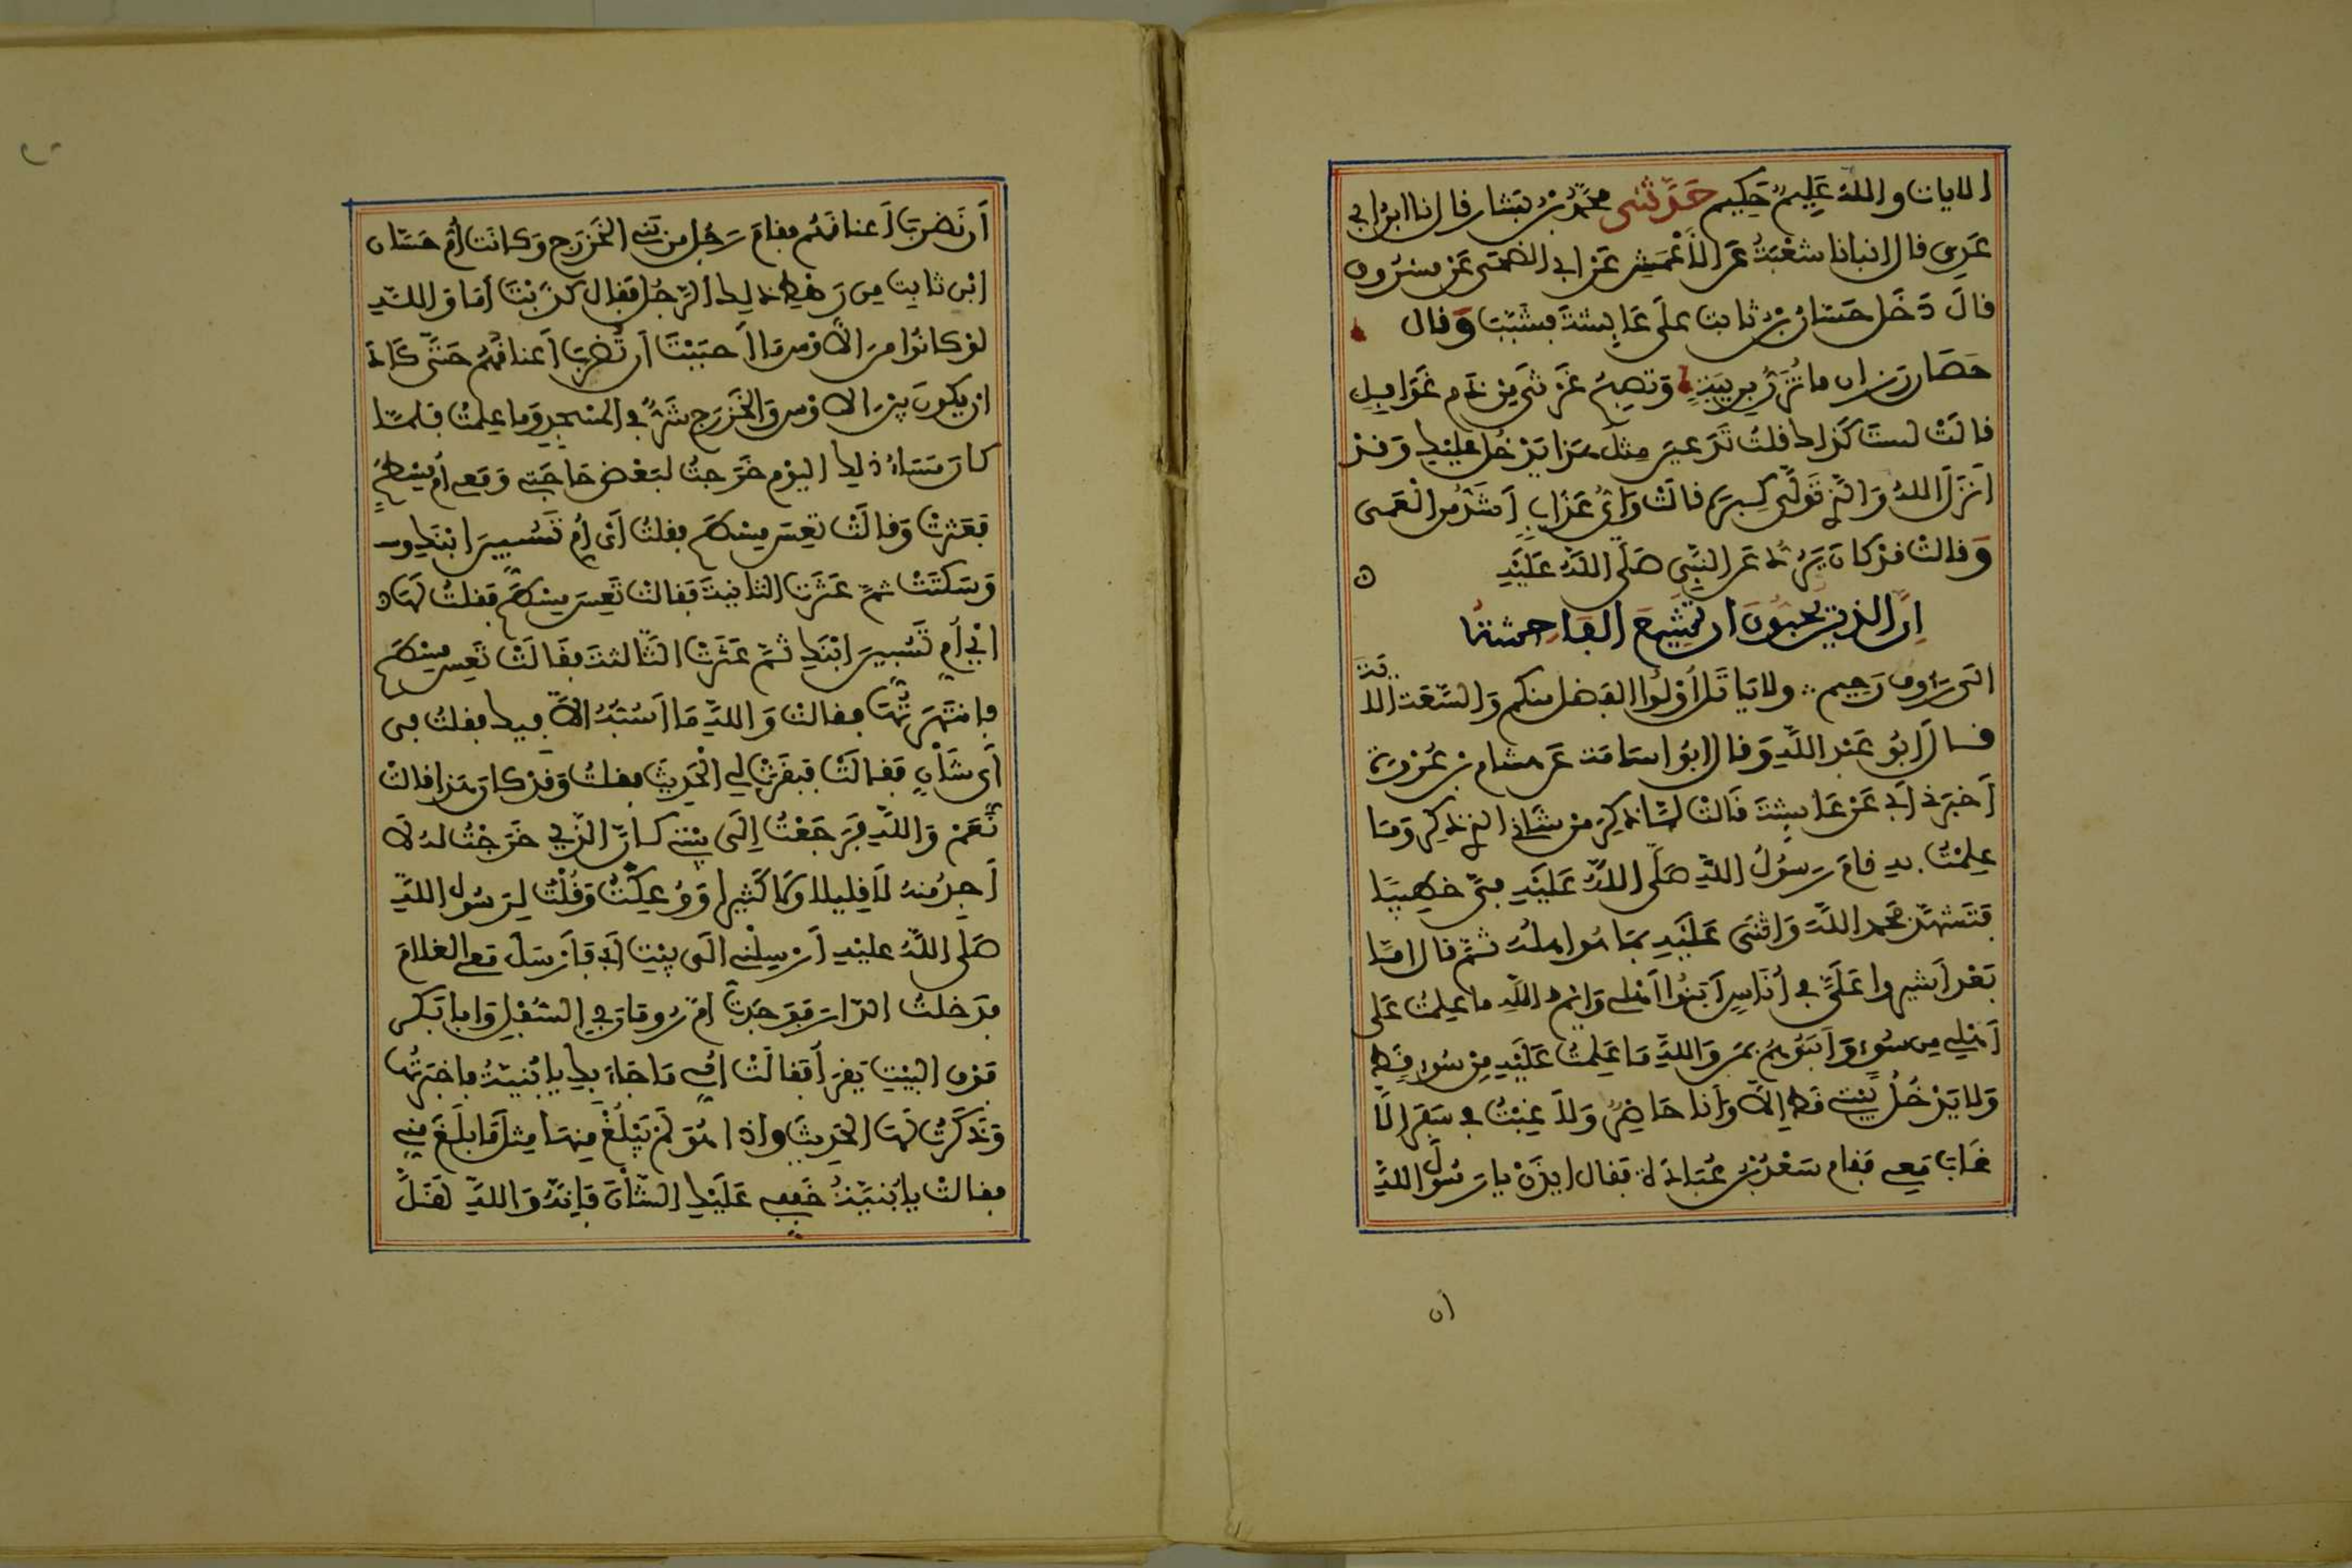 الايات والله عليم حكيم حدثنى محمد بن بشار قال انا ابن ابي
عدي قال انبانا شعبة عن الاعمش عن ابي الضحى عن مسروق
قال دخل حسان بن ثابت على عايشة فشبب وقال
حصان رزان ما تزن بريبة وتصبح غرثى من دم غوافل
قالت لست كذاك قلت تدعين مثل هذا يدخل عليك وقد
انزل الله والذي تولى كبره قالت واي عذاب اشد من العمى
وقالت قد كان يرد عن النبي صلى الله عليه
إن الذين يحبون ان تشيع الفاحشة
الى رءوف رحيم ولا ياتل أولوا الفضل منكم والسعة الاية
قال ابو عبد الله وقال ابو اسامة عن هشام بن عروة
أخبرني أبي عن عايشة قالت لما ذكر من شاني الذي ذكر وما
علمت به قام رسول الله صلى الله عليه في خطيبا
فتشهد فحمد الله واثنى عليه بما هو اهله ثم قال اما
بعد أشيروا علي في أناس أبنوا أهلي وايم الله ما علمت على
أهلي من سوء وأبنوهم بمن والله ما علمت عليه من سوء قط
ولا يدخل بيتي قط إلا وأنا حاضر ولا غبت في سفر الا
غاب معي فقام سعد بن عبادة فقال ايذن يا رسول الله
ان
أن نضرب أعناقهم فقام رجل من بني الخزرج وكانت أم حسان
ابن ثابت من رهط ذلك الرجل فقال كذبت أما والله
لو كانوا من الاوس ما أحببت أن تضرب أعناقهم حتى كاد
ان يكون بين الاوس والخزرج شر في المسجد وما علمت فلما
كان مساء ذلك اليوم خرجت لبعض حاجتي ومعي أم مسطح
فعثرت وقالت تعس مسطح فقلت أي أم تسبين ابنك
وسكتت ثم عثرت الثانية فقالت تعس مسطح فقلت لها
اي أم تسبين ابنك ثم عثرت الثالثة فقالت تعس مسطح
فانتهرتها فقالت والله ما أسبه الا فيك فقلت في
أي شأن فقالت فبقرت لي الحديث فقلت وقد كان هذا قالت
نعم والله فرجعت إلى بيتي كان الذي خرجت له لا
أجد منه لا قليلا ولا كثيرا ووعكت وقلت لرسول الله
صلى الله عليه أرسلني الى بيت أبي فأرسل معي الغلام
فدخلت الدار فوجدت ام رومان في السفل وابا بكر
فوق البيت يقرأ فقالت امي ما جاء بك يا بنية فاخبرتها
وذكرت لها الحديث واذا هو لم يبلغ منها مثل ما بلغ مني
فقالت يا بنية خفضي عليك الشأن فإنه والله لقل